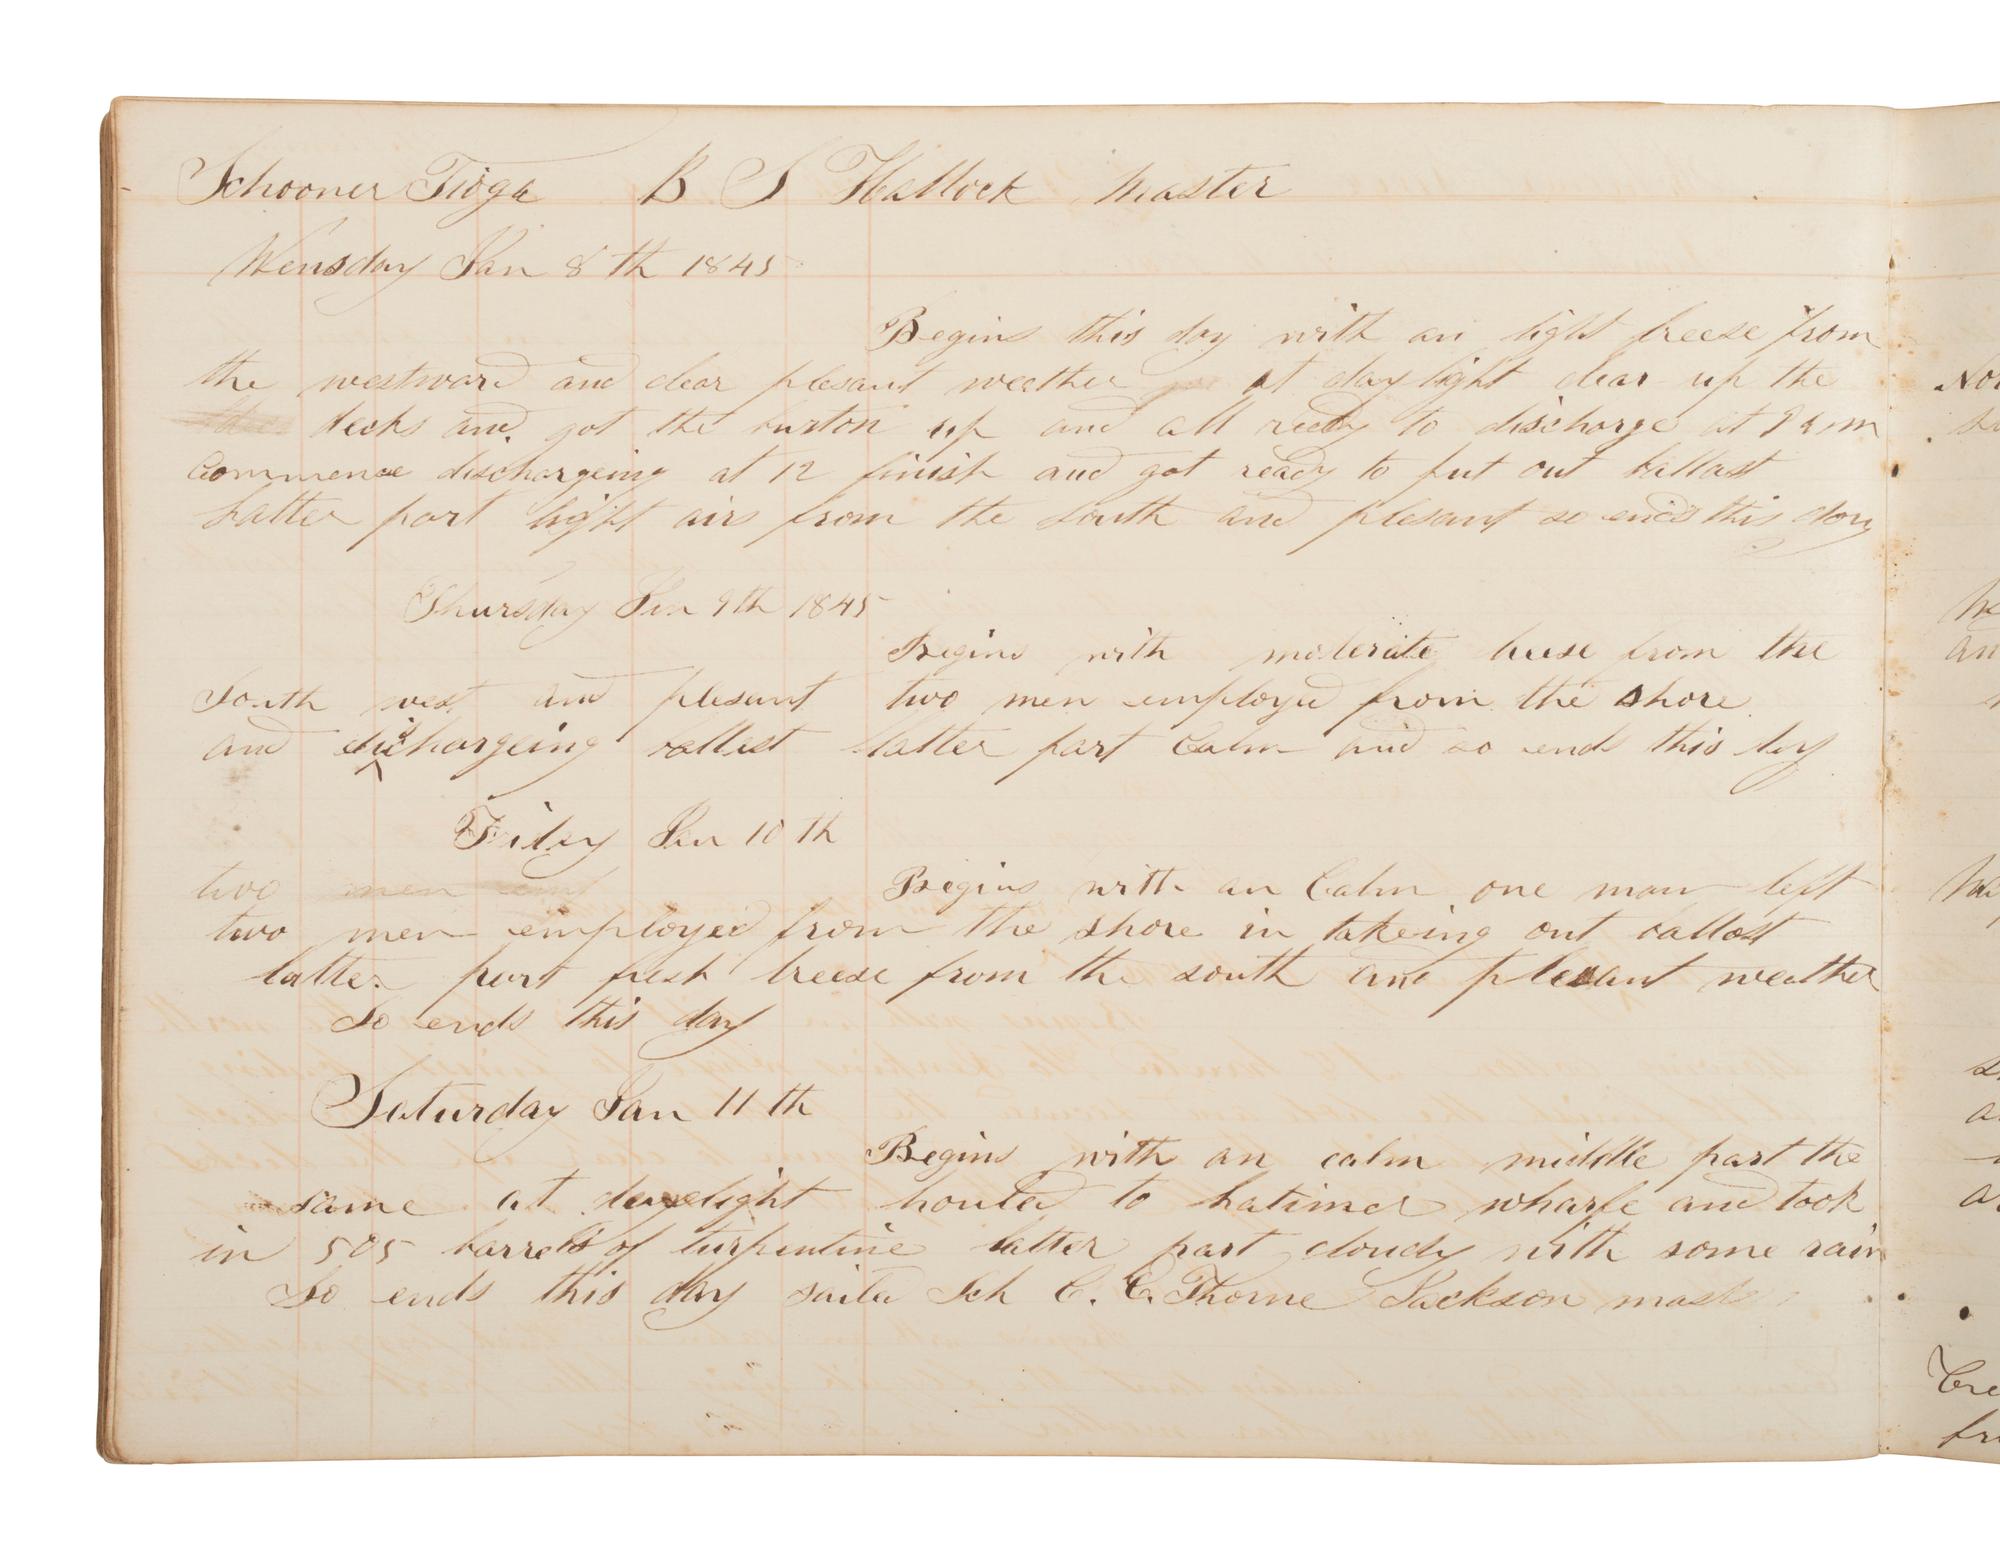 Schooner Tioga B S Hallock Master
Wensday Jan 8th 1845
Begins this day with an light breeze from
the westward and clear plesant weather at daylight clear up the
decks and got the burton up and all ready to discharge at 9 am
Commence dischargeing at 12 finish and got ready to put out ballast
Latter part light airs from the South and plesant so ends this day
Thursday Jan 9th 1845
Begins with moderate breese from the
South west and plesant two men employed from the shore
and dischargeing ballast latter part Calm and so ends this day
Friday Jan 10th
two men emp Begins with an Calm one man left
two men employed from the shore in takeing out ballast
latter part fresh breeze from the south and plesant weather
So ends this day
Saturday Jan 11th
Begins with an calm middle part the
same at daylight houled to wharfe and took
in 505 barrels of turpentine latter part cloudy with some rain
So ends this day saild Sch C. C. Thorne Jackson mast
Not
an
Cre